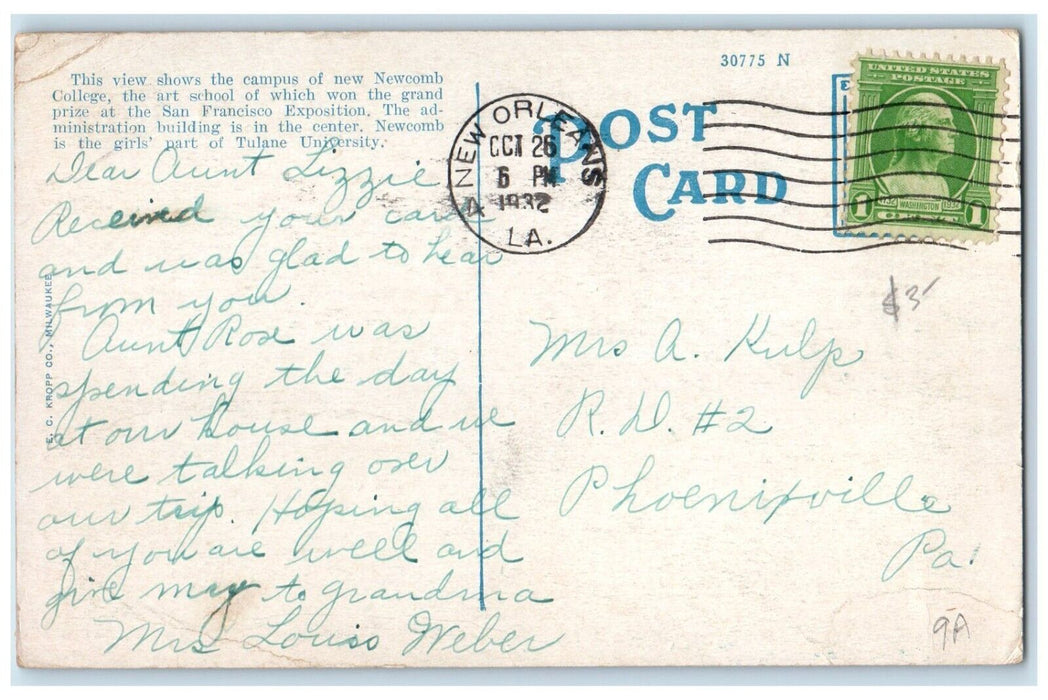 This view shows the campus of new Newcomb
College, the art school of which won the grand
prize at the San Francisco Exposition. The ad-
ministration building is in the center. Newcomb
is the girls' part of Tulane University.
Dear Aunt Lizzie
Received your card
and was glad to hear
from you.
Aunt Rose was
spending the day
at our house and we
were talking over
our trip. Hoping all
of you are well and
give may to grandma
Mrs Louiso Weber
E. C. KROPP CO., MILWAUKEE
30775 N
POST
CARD
NEW ORLEANS
OCT 26
6 PM
1932
LA.
4
UNITED STATES
POSTAGE
1732 WASHINGTON 1932
1 1
$3-
Mrs A. Kulp
R. D. #2
Phoenixville
Pa.
9A